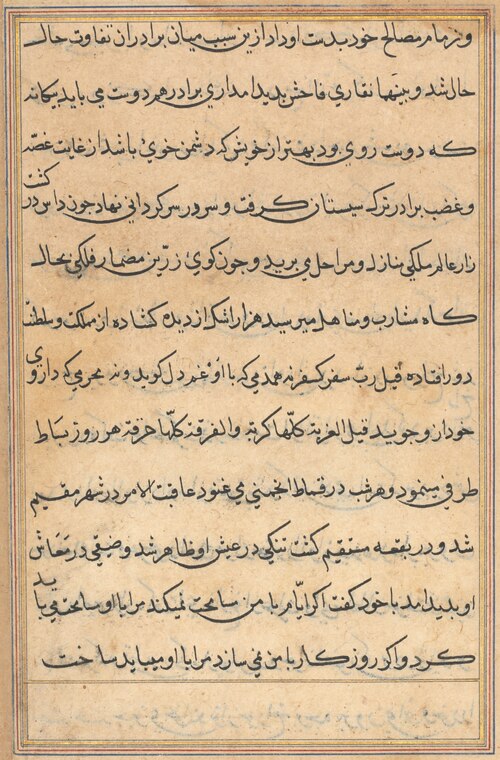 وزمام مصالح خود بدست او داد ازین سبب میان برادران تفاوت حال
حال شد و بینهما نقاری فاحش بدید امد اری برادر هم دوست می باید بیکانه
که دوست روی بود بهتر از خویش که دشمن خوی باشد از غایت غصّه
و غضب برادر ترک سیستان کرفت و سر در سرکردانی نهاد جون داس در کشت
زار عالم ملکی منازل و مراحل می برید و جون کوی زرّین مضمار فلکی بحال
کاه مشارب و مناهل میرسید هزار اشک از دیده کشاده از مملکت و سلطنت
دور افتاده قیل ربّ سفر کسفر نه همدمی که با او غم دل کوید و نه محرمی که داروی
خود از و جوید قیل الغربة کلّها کربة والفرقة کلّها حرقة هر روز بساط
طرفی میپیمود و هر شب در قماط انجمنی می غنود عاقبت الامر در شهر مقیم
شد و در بقعه مستقیم کشت تنکی در عیش او ظاهر شد و ضیقی در معاش
او بدید امد با خود کفت اکر ایّام با من سامحت نمیکند مرا با او سامحت می باید
کرد و اکر روزکار با من نمی سازد مرا با او میباید ساخت